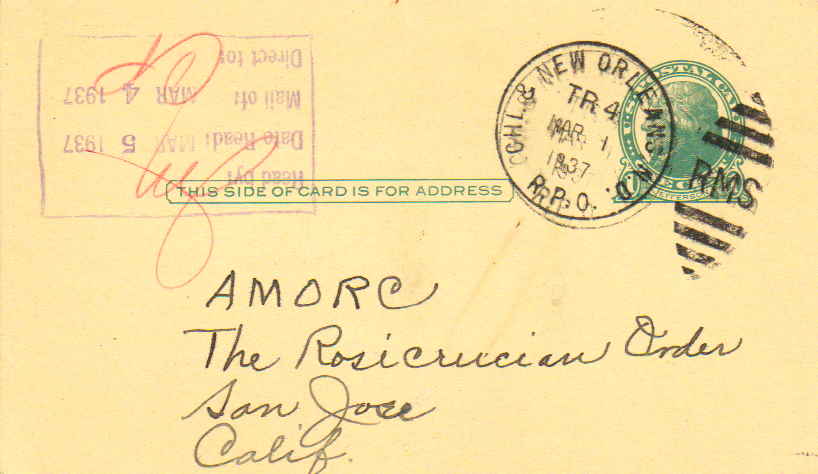 Read by:
Date Read: MAR 5 1937
Mail of: MAR 4 1937
Direct to:
& NEW ORLEANS
TR.4
MAR 1
1937
R.P.O.
RMS
THIS SIDE OF CARD IS FOR ADDRESS
AMORC
The Rosicrucian Order
San Jose
Calif.